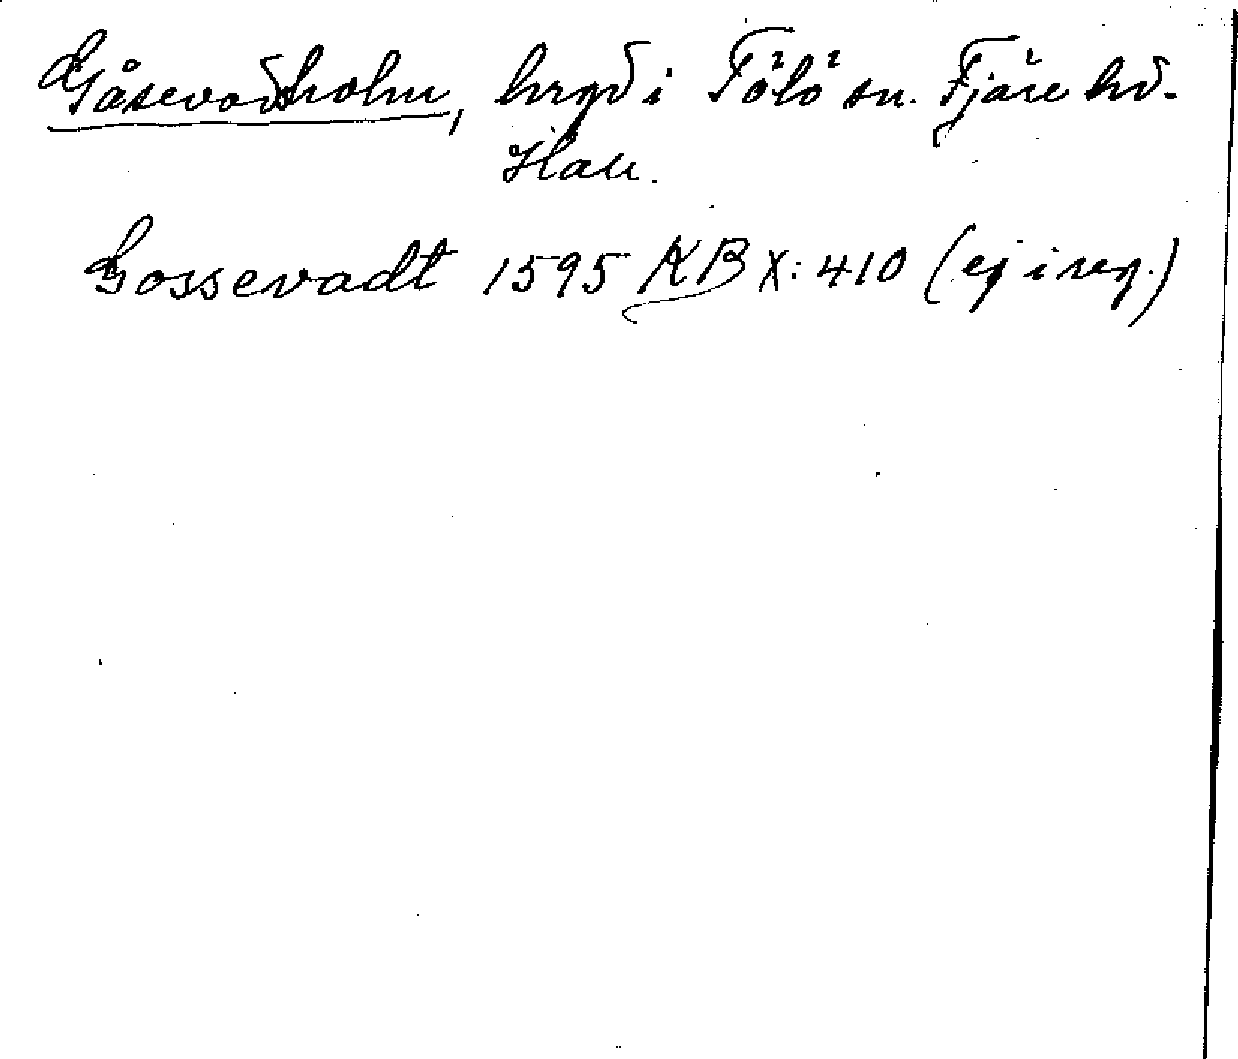 Gåsevadholm, hrgd i Tölö sn. Fjäre hd.
Hall.
Gossevadt 1595 KB X: 410 (ej i reg.)